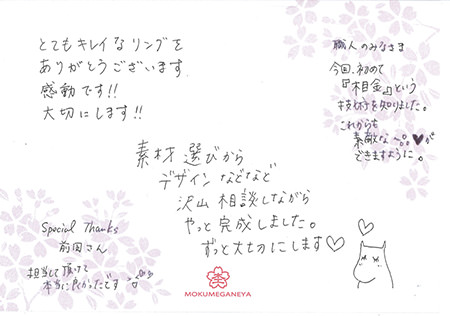 とてもキレイなリングを
ありがとうございます
感動です!!
大切にします!!
職人のみなさま
今回、初めて
『杢金』という
技術を知りました。
これからも
素敵な
ができますように。
素材選びから
デザインなどなど
沢山相談しながら
やっと完成しました。
ずっと大切にします♡
Special Thanks
前田さん
担当して頂けて
本当に良かったです
MOKUMEGANEYA